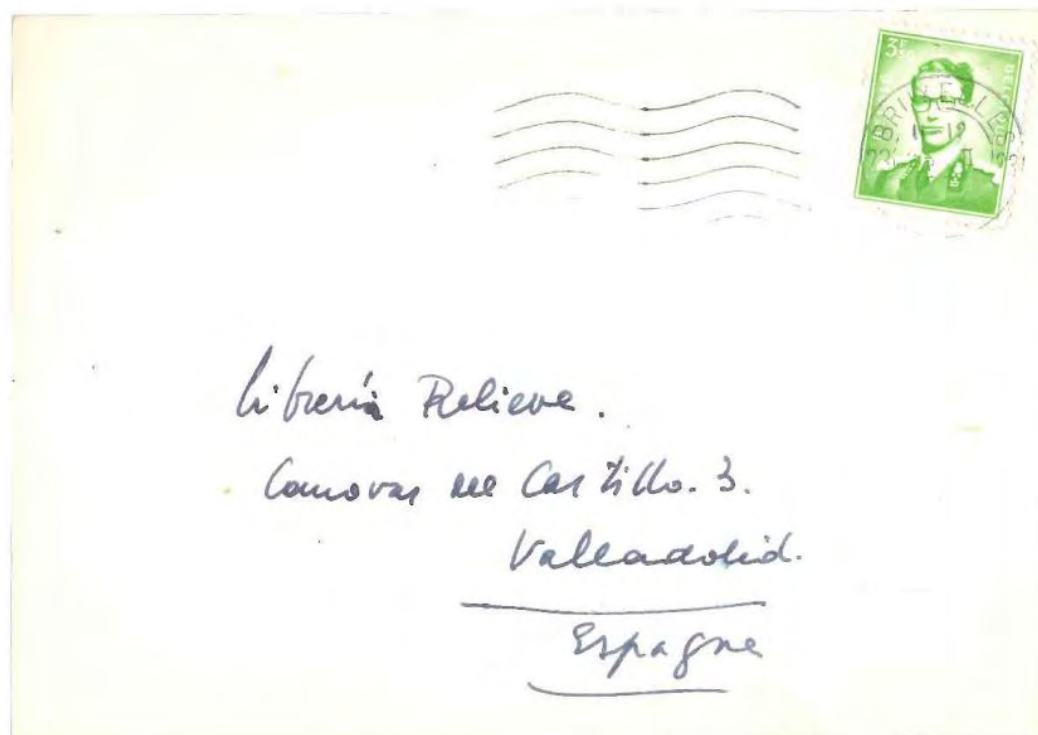 3F50
BRUXELLES
Librería Relieve.
Canovas del Castillo. 3.
Valladolid.
Espagne